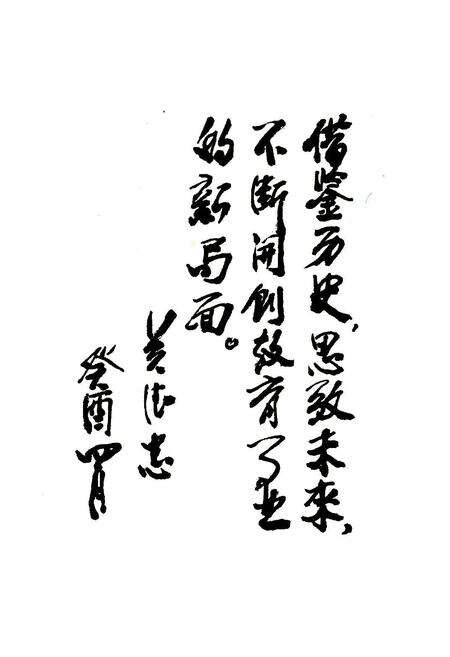 借鉴历史，思致未來，
不断开创教育事业
的新局面。
志
癸酉四月